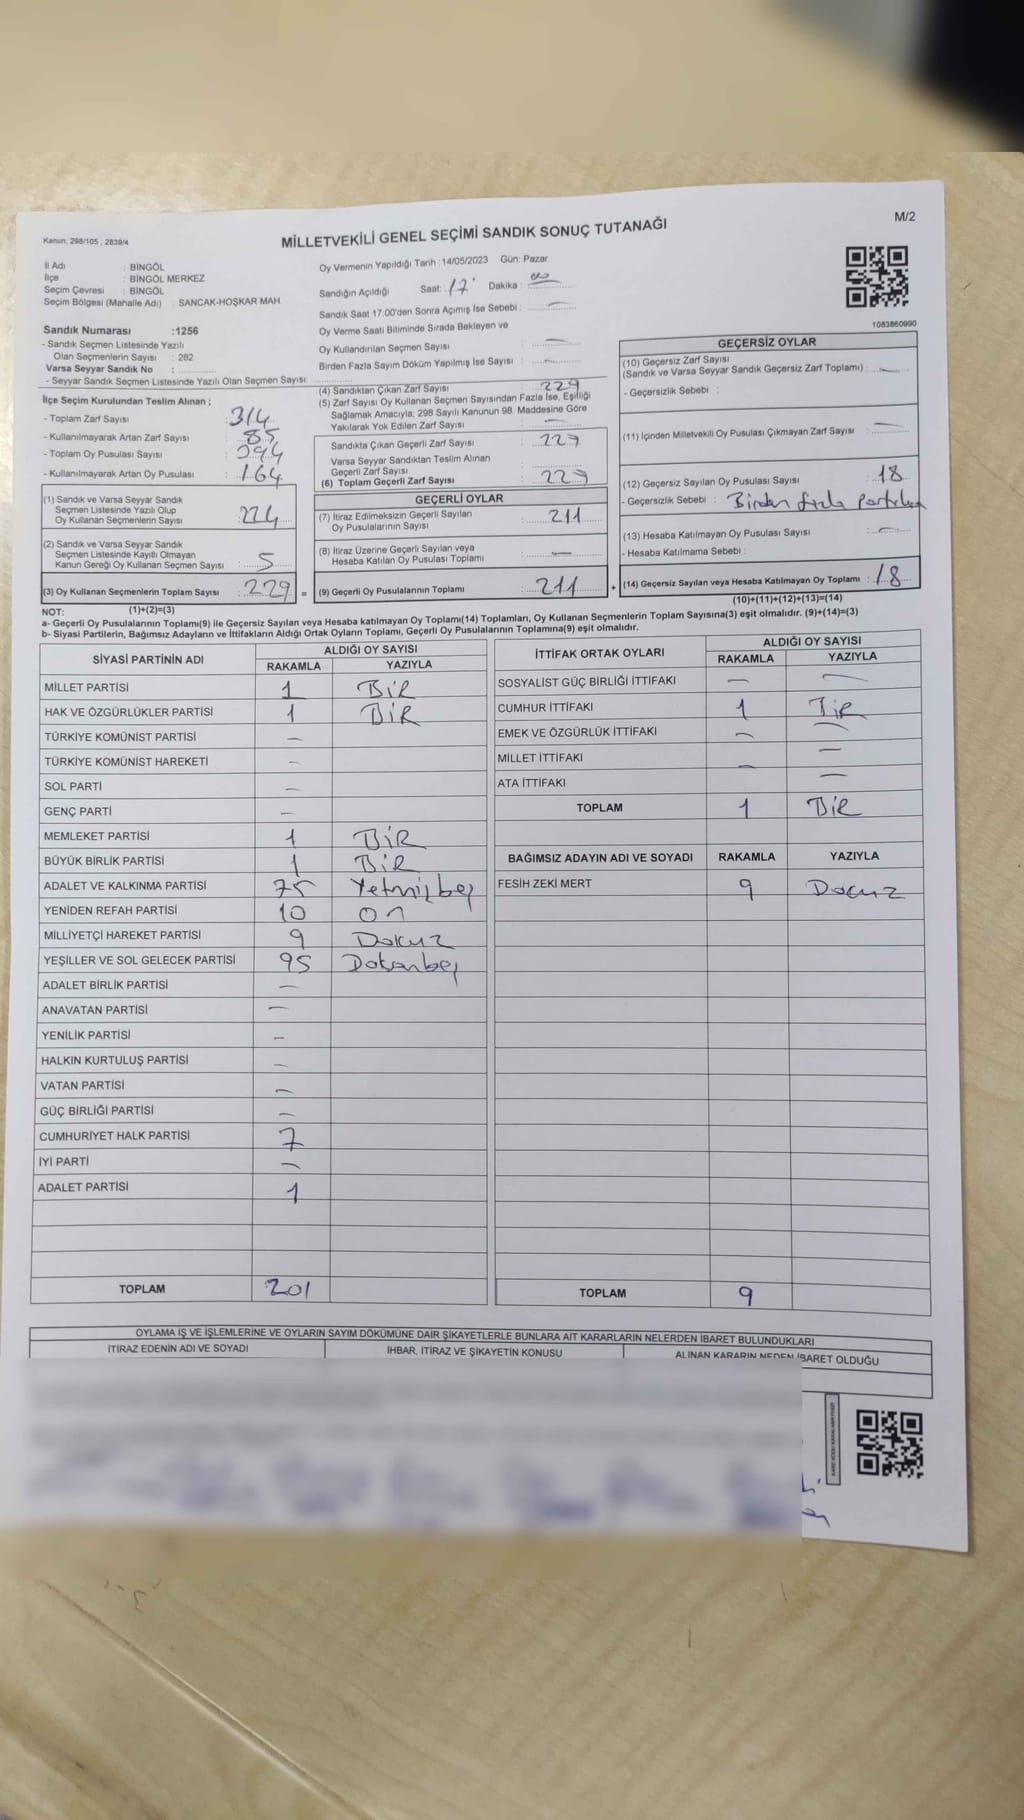 M/2
Kanun; 298/105 , 2839/4
MİLLETVEKİLİ GENEL SEÇİMİ SANDIK SONUÇ TUTANAĞI
İl Adı : BİNGÖL
İlçe : BİNGÖL MERKEZ
Seçim Çevresi : BİNGÖL
Seçim Bölgesi (Mahalle Adı) : SANCAK-HOŞKAR MAH.
Sandık Numarası :1256
- Sandık Seçmen Listesinde Yazılı
Olan Seçmenlerin Sayısı : 282
Varsa Seyyar Sandık No :
- Seyyar Sandık Seçmen Listesinde Yazılı Olan Seçmen Sayısı :
İlçe Seçim Kurulundan Teslim Alınan ;
- Toplam Zarf Sayısı : 314
- Kullanılmayarak Artan Zarf Sayısı : 85
- Toplam Oy Pusulası Sayısı : 394
- Kullanılmayarak Artan Oy Pusulası : 164
(1) Sandık ve Varsa Seyyar Sandık
Seçmen Listesinde Yazılı Olup
Oy Kullanan Seçmenlerin Sayısı : 224
(2) Sandık ve Varsa Seyyar Sandık
Seçmen Listesinde Kayıtlı Olmayan
Kanun Gereği Oy Kullanan Seçmen Sayısı : 5
(3) Oy Kullanan Seçmenlerin Toplam Sayısı : 229 =
Oy Vermenin Yapıldığı Tarih :14/05/2023 Gün: Pazar
Sandığın Açıldığı Saat: 17 Dakika : 00
Sandık Saat 17.00'den Sonra Açımış İse Sebebi : —
Oy Verme Saati Bitiminde Sırada Bekleyen ve
Oy Kullandırılan Seçmen Sayısı : —
Birden Fazla Sayım Döküm Yapılmış İse Sayısı : —
(4) Sandıktan Çıkan Zarf Sayısı : 229
(5) Zarf Sayısı Oy Kullanan Seçmen Sayısından Fazla İse, Eşitliği
Sağlamak Amacıyla, 298 Sayılı Kanunun 98. Maddesine Göre
Yakılarak Yok Edilen Zarf Sayısı : —
Sandıkta Çıkan Geçerli Zarf Sayısı : 229
Varsa Seyyar Sandıktan Teslim Alınan
Geçerli Zarf Sayısı :
(6) Toplam Geçerli Zarf Sayısı : 229
GEÇERLİ OYLAR
(7) İtiraz Edilmeksizin Geçerli Sayılan
Oy Pusulalarının Sayısı : 211
(8) İtiraz Üzerine Geçerli Sayılan veya
Hesaba Katılan Oy Pusulası Toplamı : —
(9) Geçerli Oy Pusulalarının Toplamı : 211 +
1083860990
GEÇERSİZ OYLAR
(10) Geçersiz Zarf Sayısı
(Sandık ve Varsa Seyyar Sandık Geçersiz Zarf Toplamı) : —
- Geçersizlik Sebebi :
(11) İçinden Milletvekili Oy Pusulası Çıkmayan Zarf Sayısı : —
(12) Geçersiz Sayılan Oy Pusulası Sayısı : 18
- Geçersizlik Sebebi : Birden fazla
(13) Hesaba Katılmayan Oy Pusulası Sayısı : —
- Hesaba Katılmama Sebebi :
(14) Geçersiz Sayılan veya Hesaba Katılmayan Oy Toplamı : 18
NOT: (1)+(2)=(3) (10)+(11)+(12)+(13)=(14)
a- Geçerli Oy Pusulalarının Toplamı(9) ile Geçersiz Sayılan veya Hesaba katılmayan Oy Toplamı(14) Toplamları, Oy Kullanan Seçmenlerin Toplam Sayısına(3) eşit olmalıdır. (9)+(14)=(3)
b- Siyasi Partilerin, Bağımsız Adayların ve İttifakların Aldığı Ortak Oyların Toplamı, Geçerli Oy Pusulalarının Toplamına(9) eşit olmalıdır.
SİYASİ PARTİNİN ADI ALDIĞI OY SAYISI
RAKAMLA YAZIYLA
MİLLET PARTİSİ 1 BİR
HAK VE ÖZGÜRLÜKLER PARTİSİ 1 BİR
TÜRKİYE KOMÜNİST PARTİSİ —
TÜRKİYE KOMÜNİST HAREKETİ —
SOL PARTİ —
GENÇ PARTİ —
MEMLEKET PARTİSİ 1 BİR
BÜYÜK BİRLİK PARTİSİ 1 BİR
ADALET VE KALKINMA PARTİSİ 75 Yetmişbeş
YENİDEN REFAH PARTİSİ 10 On
MİLLİYETÇİ HAREKET PARTİSİ 9 Dokuz
YEŞİLLER VE SOL GELECEK PARTİSİ 95 Doksanbeş
ADALET BİRLİK PARTİSİ —
ANAVATAN PARTİSİ —
YENİLİK PARTİSİ —
HALKIN KURTULUŞ PARTİSİ —
VATAN PARTİSİ —
GÜÇ BİRLİĞİ PARTİSİ —
CUMHURİYET HALK PARTİSİ 7
İYİ PARTİ —
ADALET PARTİSİ 1
TOPLAM 201
İTTİFAK ORTAK OYLARI ALDIĞI OY SAYISI
RAKAMLA YAZIYLA
SOSYALİST GÜÇ BİRLİĞİ İTTİFAKI — —
CUMHUR İTTİFAKI 1 BİR
EMEK VE ÖZGÜRLÜK İTTİFAKI — —
MİLLET İTTİFAKI — —
ATA İTTİFAKI —
TOPLAM 1 BİR
BAĞIMSIZ ADAYIN ADI VE SOYADI RAKAMLA YAZIYLA
FESİH ZEKİ MERT 9 Dokuz
TOPLAM 9
OYLAMA İŞ VE İŞLEMLERİNE VE OYLARIN SAYIM DÖKÜMÜNE DAİR ŞİKAYETLERLE BUNLARA AİT KARARLARIN NELERDEN İBARET BULUNDUKLARI
İTİRAZ EDENİN ADI VE SOYADI İHBAR, İTİRAZ VE ŞİKAYETİN KONUSU ALINAN KARARIN NEDEN İBARET OLDUĞU